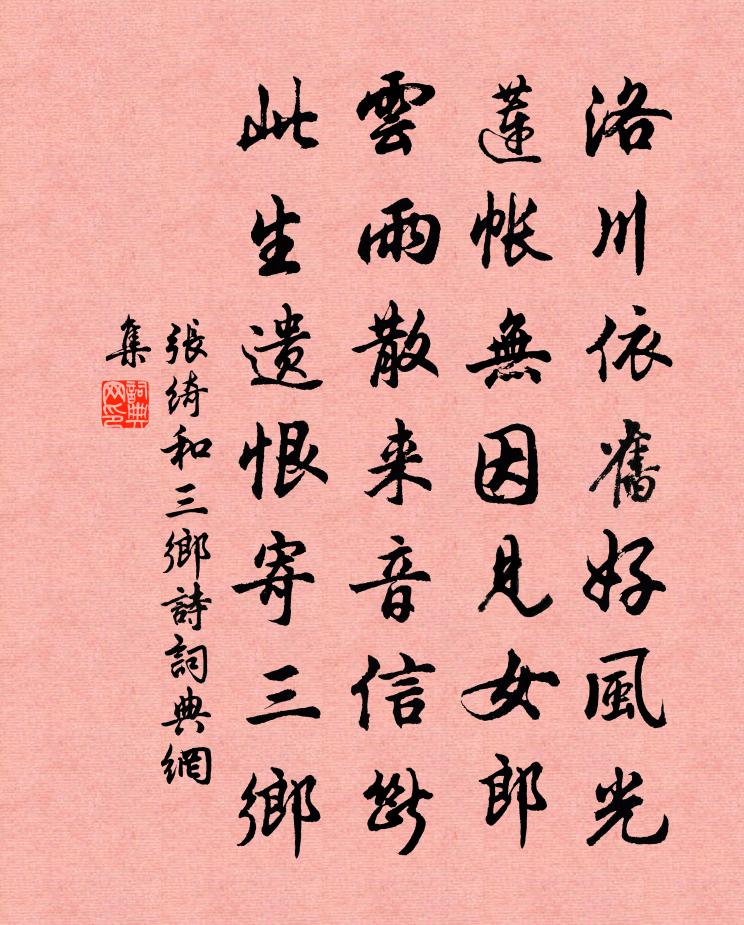 洛川依舊好風光
蓮帳無因見女郎
雲雨散来音信斷
此生遗恨寄三鄉
張綺和三鄉詩詞典網
集
詞典
网印